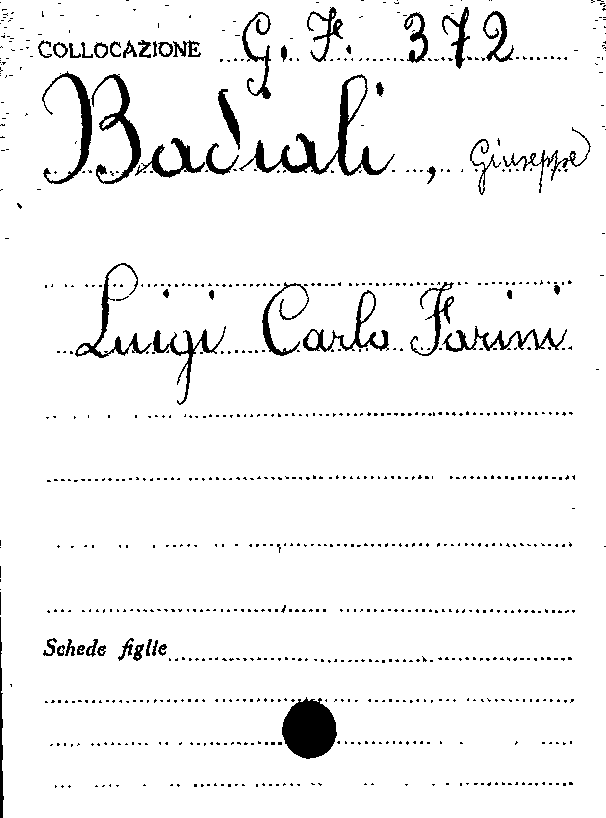 COLLOCAZIONE G. F. 372
Badiali, Giuseppe
Luigi Carlo Farini
Schede figlie